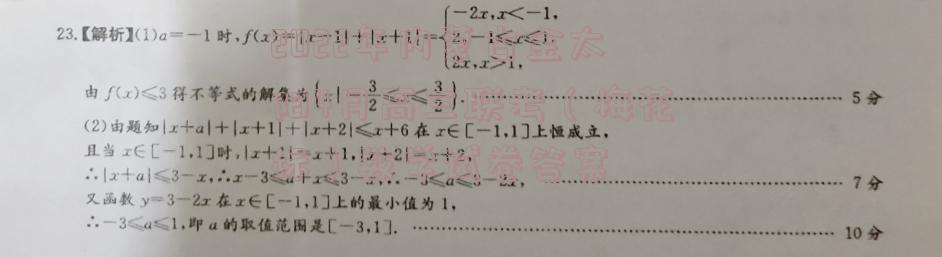 23.【解析】(1)a=-1时,f(x)=|x-1|+|x+1|={-2x,x<-1,
2,-1≤x≤1,
2x,x>1,
由f(x)≤3得不等式的解集为{x|-3/2≤x≤3/2}.……5分
(2)由题知|x+a|+|x+1|+|x+2|≤x+6在x∈[-1,1]上恒成立,
且当x∈[-1,1]时,|x+1|=x+1,|x+2|=x+2,
∴|x+a|≤3-x,∴x-3≤a+x≤3-x,∴-3≤a≤3-2x,……7分
又函数y=3-2x在x∈[-1,1]上的最小值为1,
∴-3≤a≤1,即a的取值范围是[-3,1].……10分
2022年内蒙古金太
阳4月高三联考(梅花